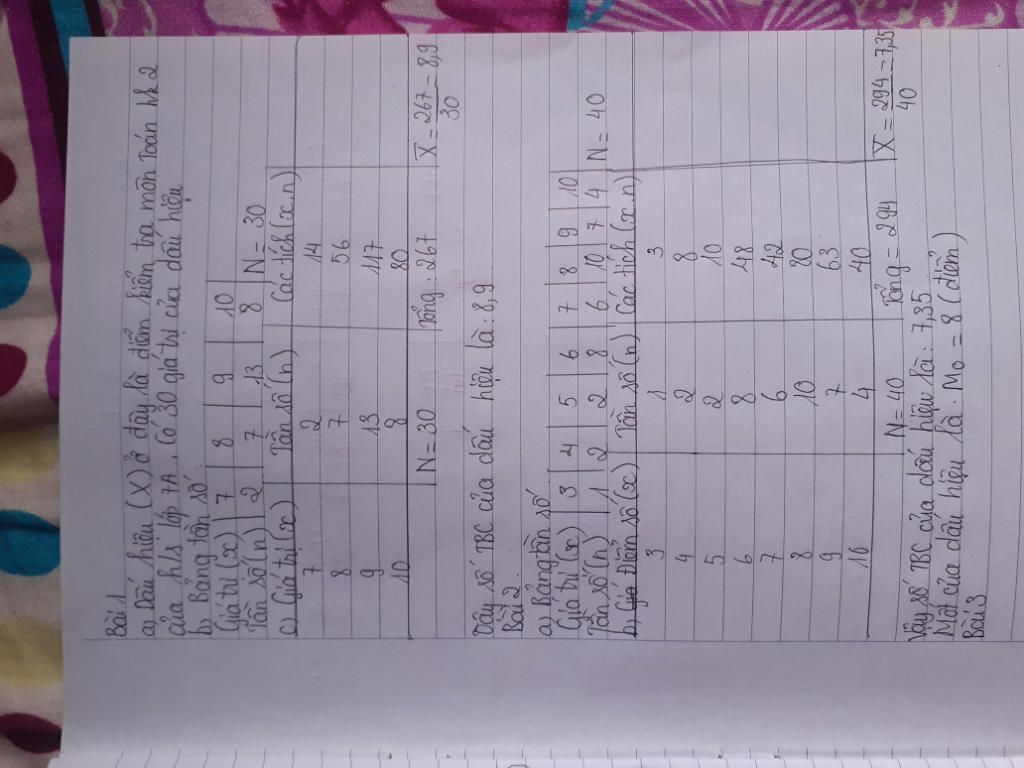 Bài 1
a) Dấu hiệu (X) ở đây là điểm kiểm tra môn Toán hk 2
của h/s lớp 7A. Có 30 giá trị của dấu hiệu
b) Bảng tần số
Giá trị (x) 7 8 9 10
Tần số (n) 2 7 13 8 N = 30
c) Giá trị (x) Tần số (n) Các tích (x.n)
7 2 14
8 7 56
9 13 117
10 8 80
N = 30 Tổng: 267 X = 267/30 = 8,9
Vậy số TBC của dấu hiệu là: 8,9
Bài 2.
a) Bảng tần số
Giá trị (x) 3 4 5 6 7 8 9 10
Tần số (n) 1 2 2 8 6 10 7 4 N = 40
b) Giá Điểm số (x) Tần số (n) Các tích (x.n)
3 1 3
4 2 8
5 2 10
6 8 48
7 6 42
8 10 80
9 7 63
10 4 40
N = 40 Tổng = 294 X = 294/40 = 7,35
Vậy số TBC của dấu hiệu là: 7,35
Mốt của dấu hiệu là: M₀ = 8 (điểm)
Bài 3